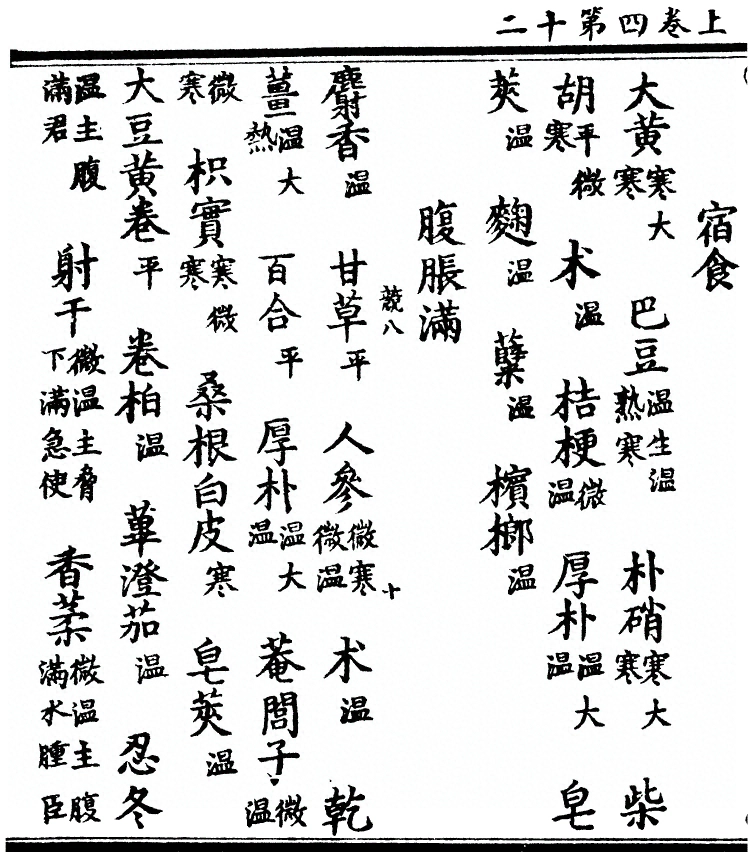 上卷四第十二
宿食
大黄寒大寒 巴豆温生温熱寒 朴硝寒大寒 柴
胡平微寒 术温 桔梗微温 厚朴温大温 皂
莢温 麴温 蘖温 檳榔温
腹脹滿
八 十
麝香温 甘草平 人參微寒微温 术温 乾
薑温大熱 百合平 厚朴温大温 菴閭子微温
微寒 枳實寒微寒 桑根白皮寒 皂莢温
大豆黄卷平 卷柏温 蓽澄茄温 忍冬
温主腹滿君 射干微温主脅下滿急使 香葇微温主腹滿水腫臣